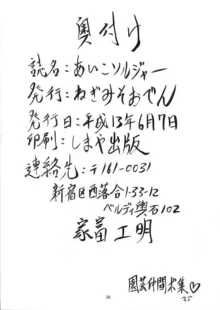 奥付け
誌名：あいこソルジャー
発行：ねぎみそおでん
発行日：平成13年6月7日
印刷：しまや出版
連絡先：〒161-0031
新宿区西落合1-33-12
ベルディ輿石102
家富工明
園芸仲間求集♡
36